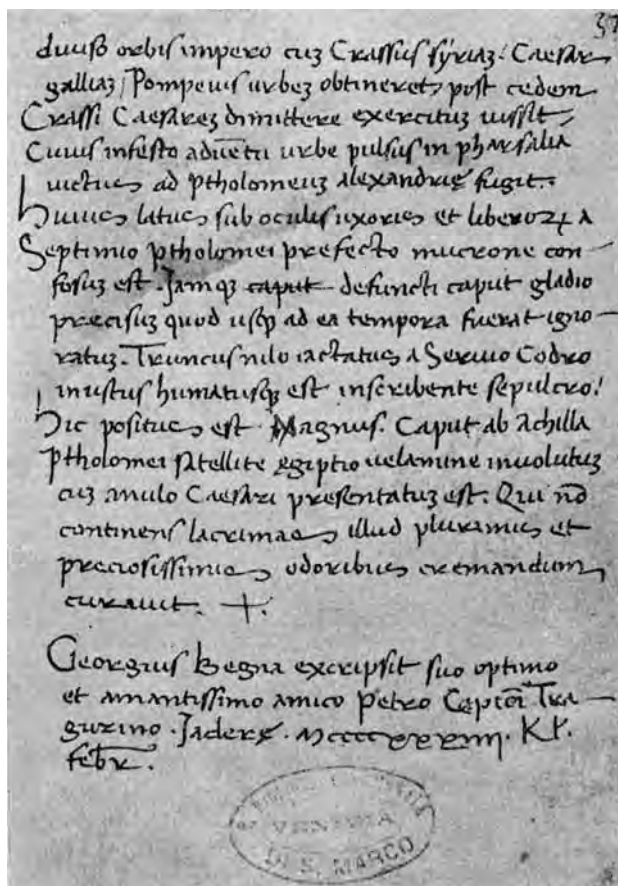 37
diuiso orbis impero cuȝ Crassus syriaȝ: Caesar
galliaȝ: Pompeius urbeȝ obtineret, post cedem
Crassi Caesareȝ dimittere exercituȝ iussit,
Cuius infesto aduētu urbe pulsus in pharsalia
uictus ad ptholomeuȝ alexandrię fugit.
huius latus sub oculis uxoris et liberoꝝ a
Septimio ptholomei prefecto mucrone con-
fosuȝ est. Jamqȝ caput defuncti caput gladio
precisuȝ quod usqȝ ad ea tempora fuerat igno-
ratuȝ. Truncus nilo iactatus a Seruio Codro
inustus humatusqȝ est inscribente sepulcro:
hic positus est Magnus. Caput ab Achilla
ptholomei satellite ęgiptio uelamine inuolutuȝ
cuȝ anulo Caesari presentatuȝ est. Qui nō
continens lacrimas illud pluramis et
preciosissimis odoribus cremandum
curauit. +.
Georgius Begna excripsit suo optimo
et amantissimo amico Petro Cępioni Tra-
gurino. Jaderę. Mccccxxxiiii. Kł.
febr.
DI S. MARCO